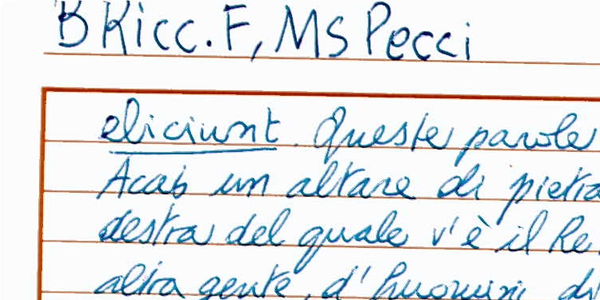 B Ricc. F, Ms Pecci
eliciunt. Queste parole
Acab un altare di pietra
destra del quale v'è il Re.
altra gente, d'huomini di